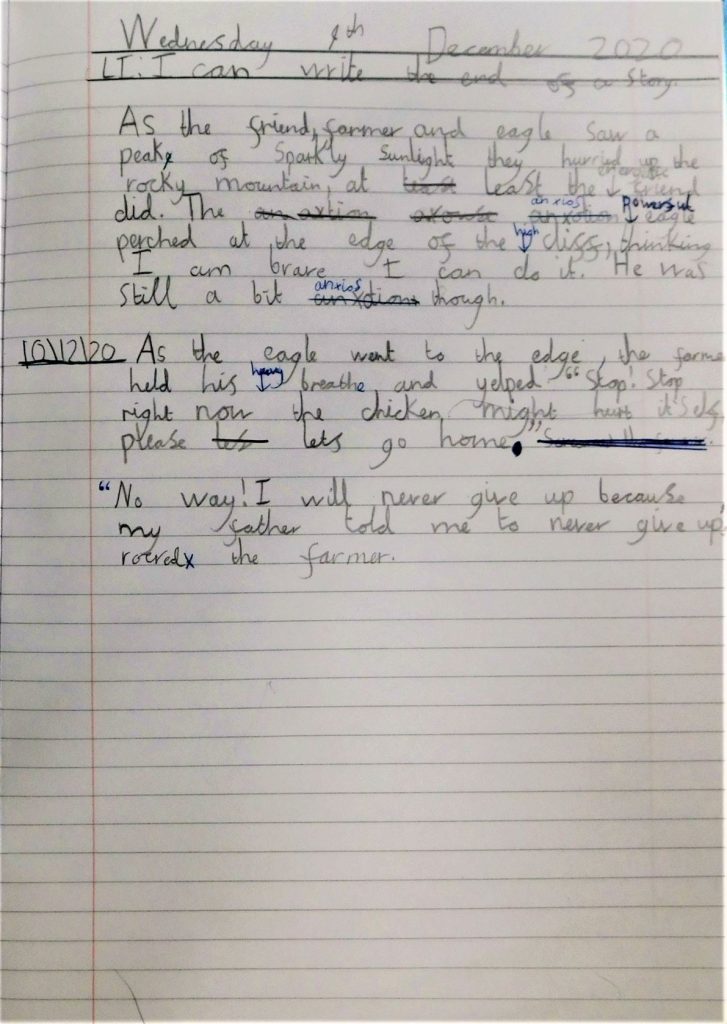 Wednesday 9th December 2020
LI: I can write the end of a Story.
As the friend, farmer and eagle saw a
peak of Sparkly Sunlight they hurried up the
rocky mountain, at least least the friend
did. The an axtion anxios Powerful eagle
perched at the edge of the high cliff, thinking
I am brave I can do it. He was
Still a bit anxios anxtions though.
10/12/20 As the eagle went to the edge, the farme
held his heavy breathe and yelped "Stop! Stop
right now the chicken might hurt itself,
please let lets go home."
"No way! I will never give up because
my father told me to never give up,
rored the farmer.